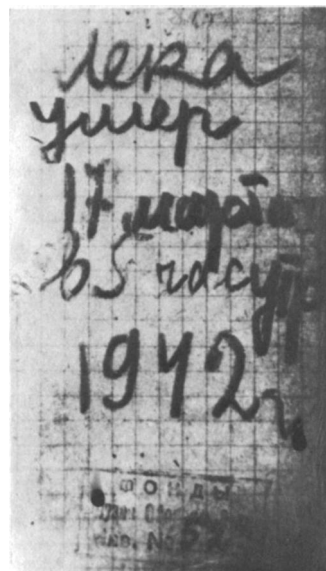 Лека
умер
17 марта
в 5 час утр
1942 г.
ФОНДЫ
№ 52